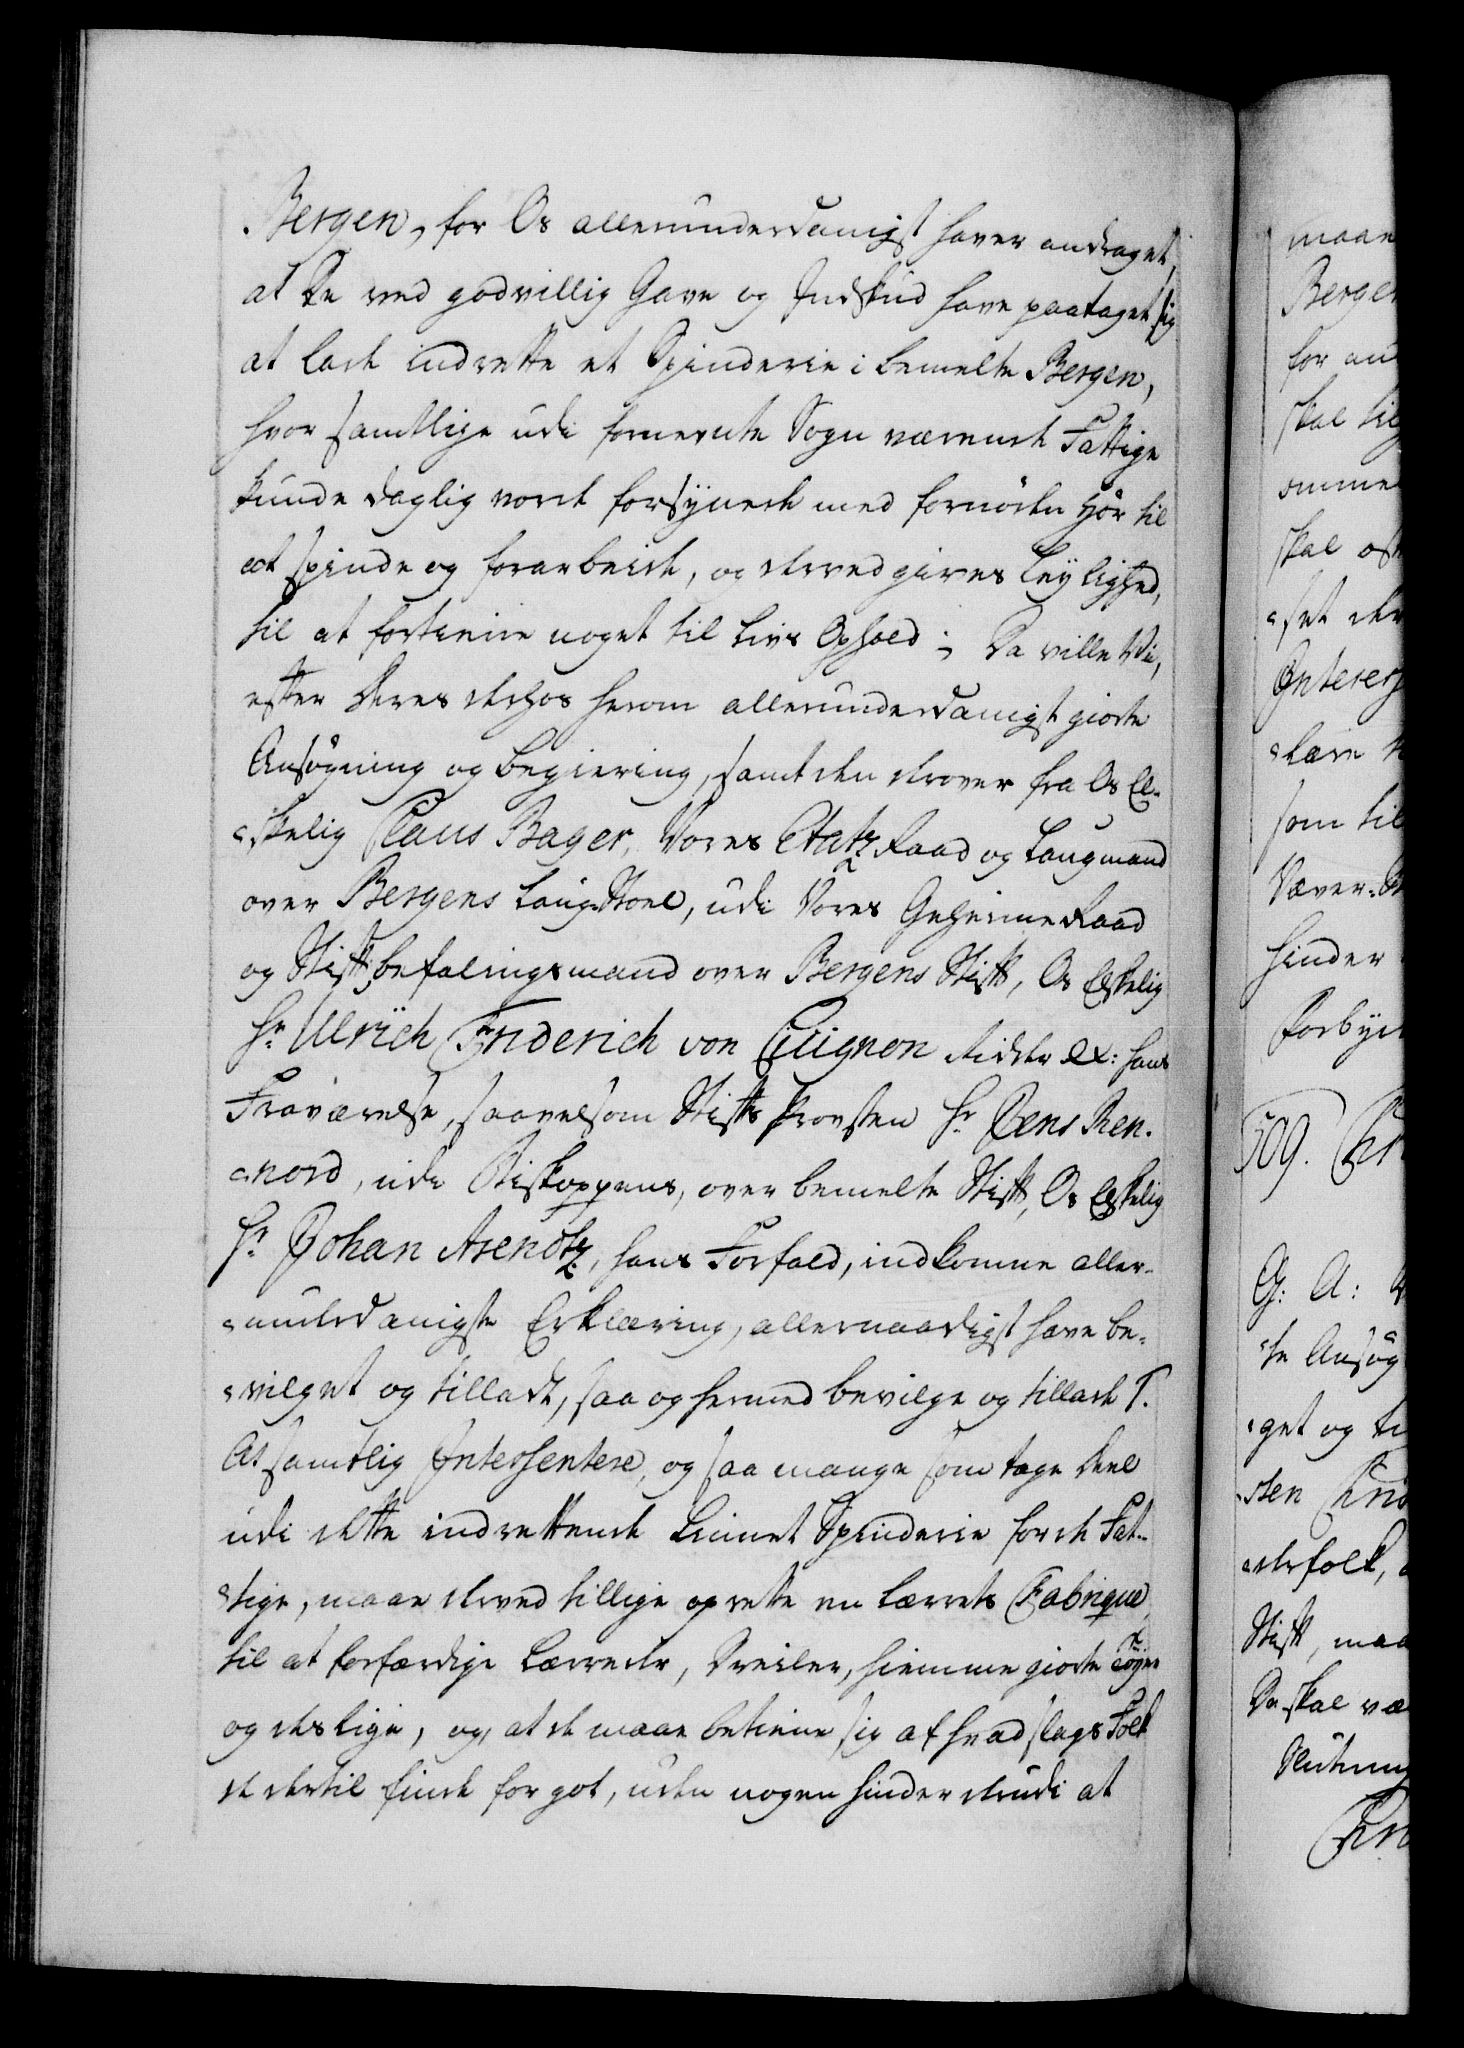 Bergen, for Os allerunderdanigst haver andraget,
at De ved godvillig Gave og Indskud have paataget sig
at lade indrette et Spinderie i bemelte Bergen,
hvor samtlige udi fornevnte Sogn værende Fattige
kunde daglig vorde forsÿnede med fornöden Hör til
at spinde og forarbeide, og derved gives Leÿlighed,
til at fortiene noget til Livs Ophold; Da ville Vi,
efter deres derhos herom allerunderdanigst giorte
Ansögning og begiering, samt den derover fra Os El-
skelig Claus Bager, Vores Etatz Raad og Laugmand
over Bergens Laug-Stoel, udi Vores Geheime Raad
og Stiftbefalingsmand over Bergens Stift, Os Elskelig
Hr. Ulrich Friderich von Cicignon Ridder &c: hans
Fraværelse, saavelsom Stifts Provsten Hr. Jens Ren-
nord, udi Biskoppens, over bemelte Stift, Os Elskelig
Hr. Johan Arendtz, hans Forfald, indkomne aller-
underdanigste Erklæring, allernaadigst have be-
vilget og tilladt, saa og hermed bevilge og tillade 1.
At samtlig Interssentere, og saa mange som tage Deel
udi dette indrettende Linnet Spinderie for de Fat-
tige, maae derved tillige oprette en Lærrets Fabrique
til at forfærdige Lærreder, Dreiler, hiemmegiorte Töÿer
og deslige, og, at de maae betiene sig af hvad slags Folk
de dertil finde for got, uden nogen hinder derudi at
maae
Bergen
for an
skal
omme
skal
set der
Interess
lære
som til
Væver
hinder
Forbÿd
509. Chr
G: A:
te Ansög
get og ti
sten Chris
derfolk,
Stift, maa
Da skal væ
Slutning
Chr